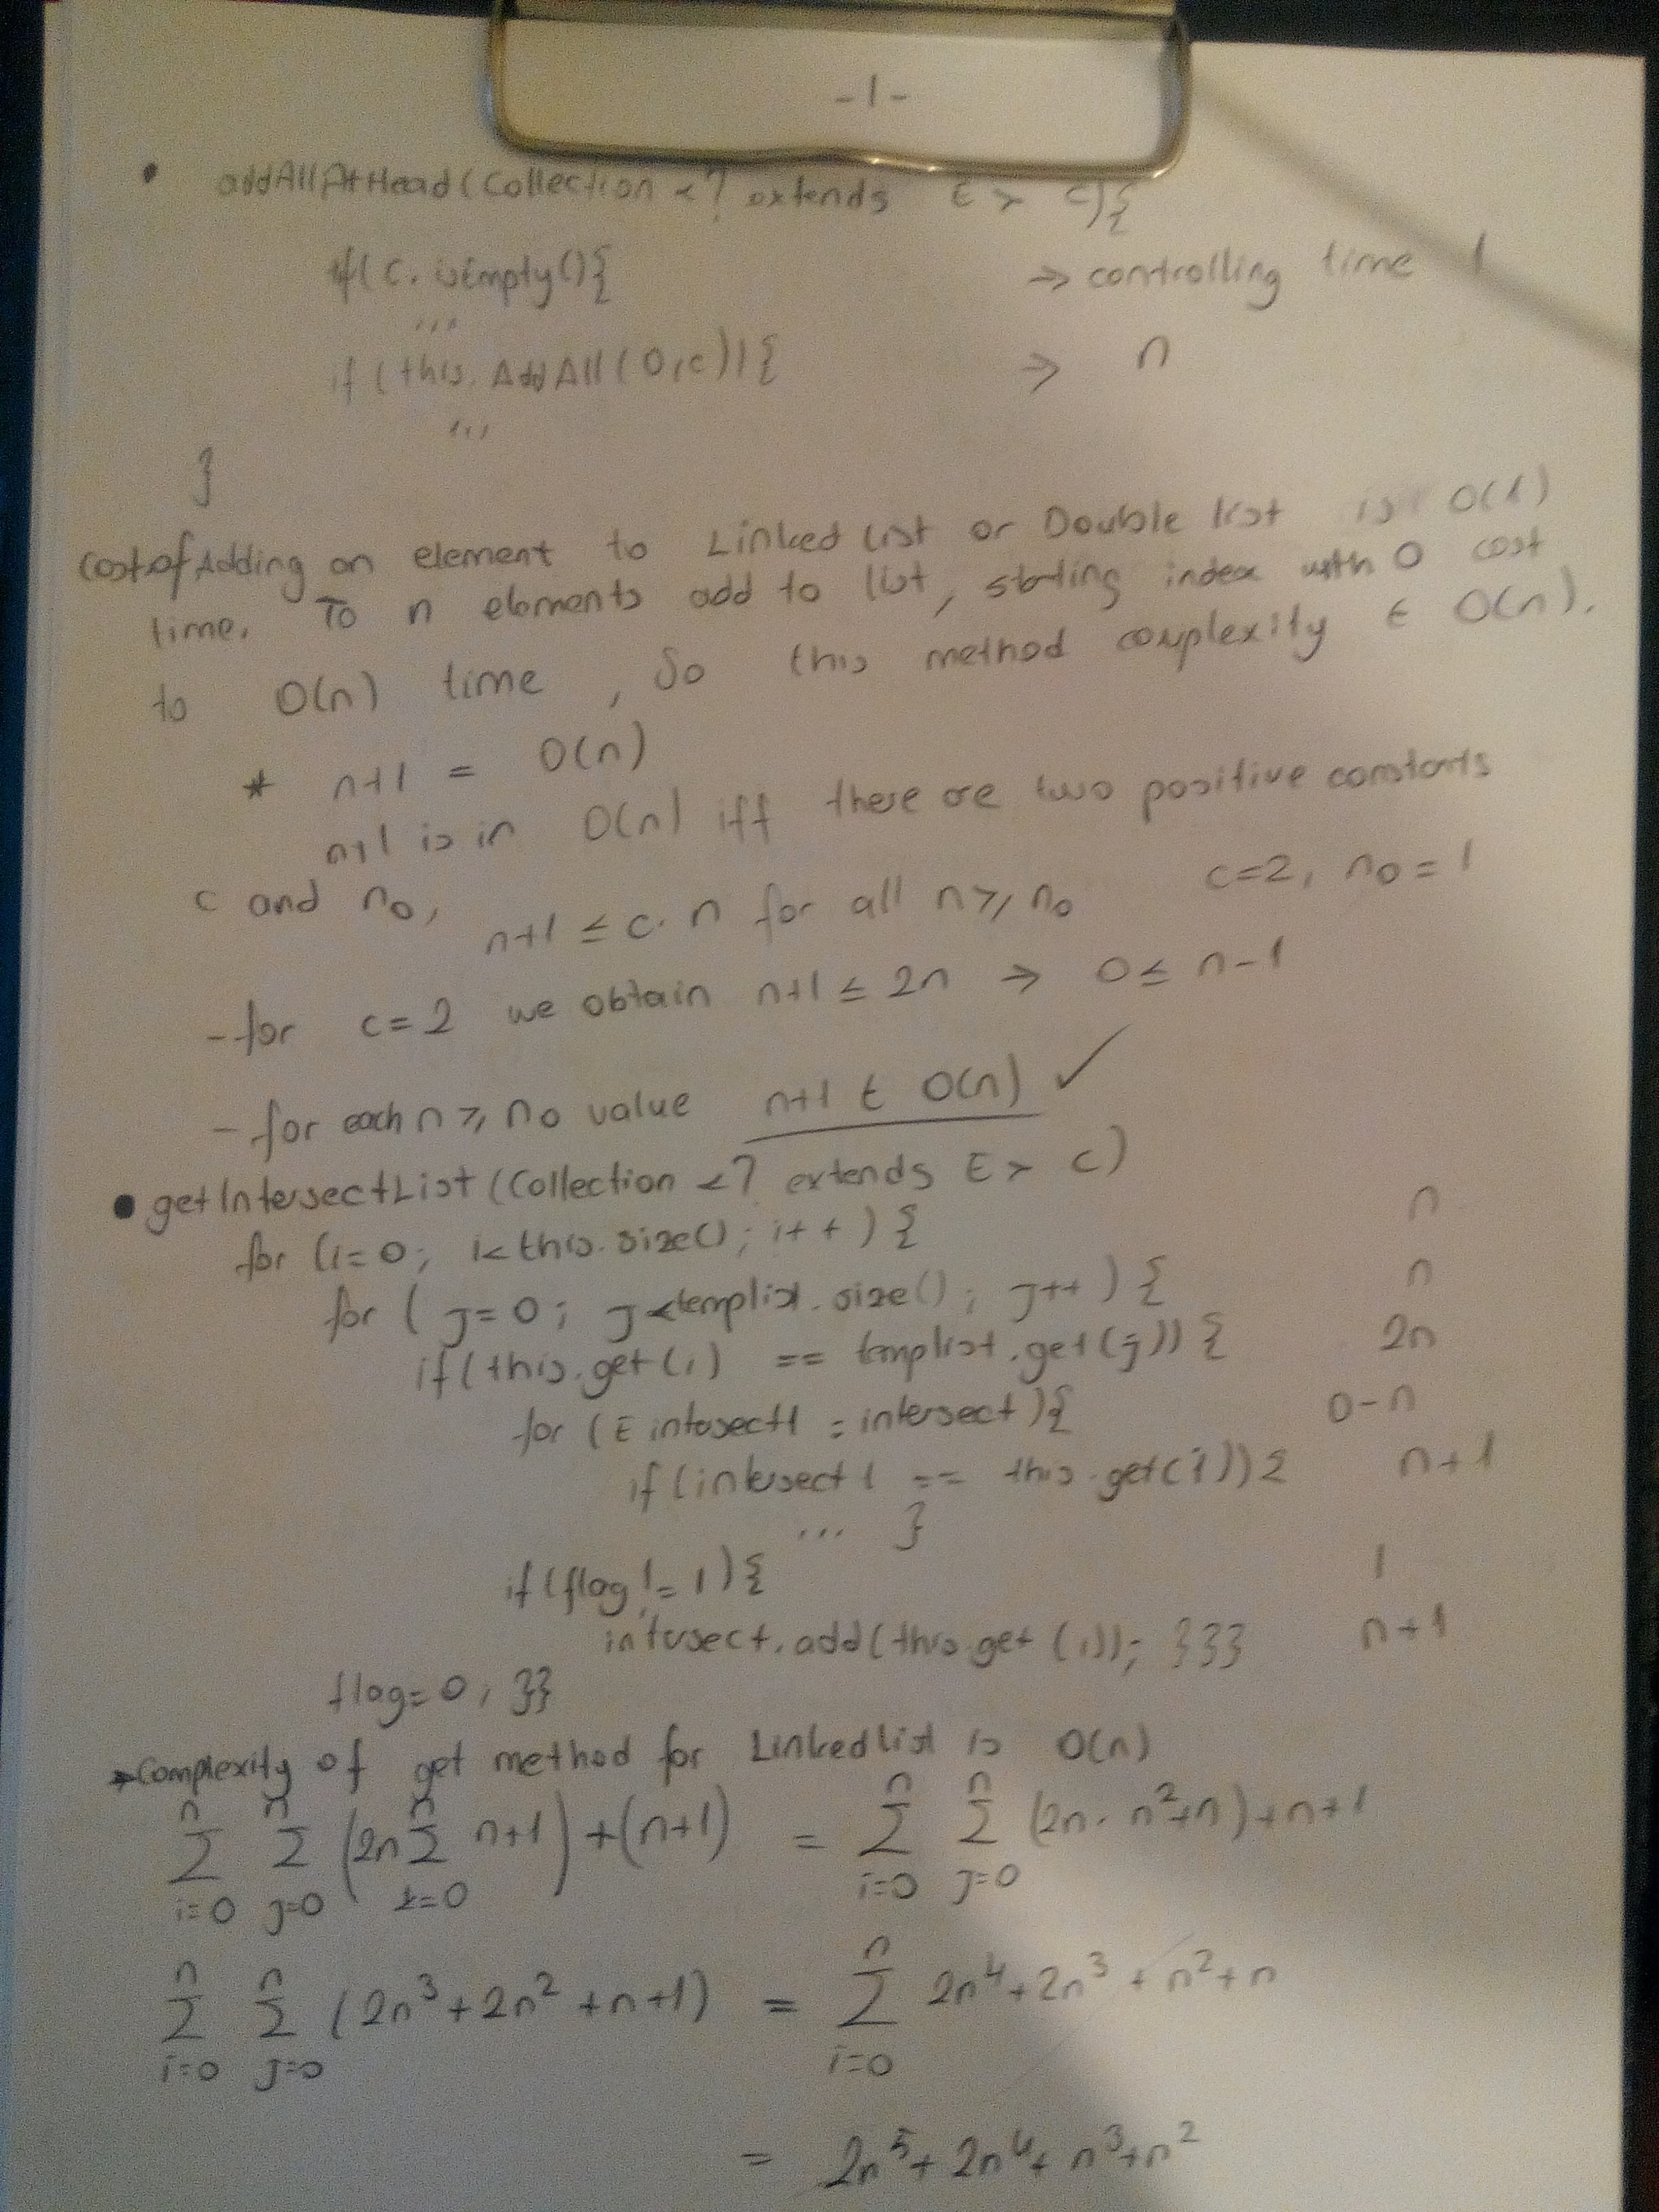 -1-
• addAllAtHead(Collection <? extends E> c){
if(c.isEmpty(){ → controlling time 1
...
if(this.AddAll(0,c)){ → n
...
}
Cost of Adding an element to Linked List or Double list is O(1)
time. To n elements add to list, starting index with 0 cost
to O(n) time, So this method complexity ∈ O(n).
* n+1 = O(n)
n+1 is in O(n) iff there are two positive constants
c and n₀, n+1 ≤ c.n for all n≥n₀ c=2, n₀=1
- for c=2 we obtain n+1 ≤ 2n → 0 ≤ n-1
- for each n≥n₀ value n+1 ∈ O(n) ✓
• getIntersectList(Collection <? extends E> c)
for (i=0; i<this.size(); i++){ n
for (j=0; j<templist.size(); j++){ n
if(this.get(i) == templist.get(j)){ 2n
for (E intersect1 : intersect){ 0-n
if(intersect1 == this.get(i)){ n+1
... }
if(flag != 1){ 1
intersect.add(this.get(i)); }}} n+1
flag=0; }}
→ Complexity of get method for Linkedlist is O(n)
∑_{i=0}^{n} ∑_{j=0}^{n} (2n ∑_{k=0}^{n} n+1) + (n+1) = ∑_{i=0}^{n} ∑_{j=0}^{n} (2n. n²+n)+n+1
∑_{i=0}^{n} ∑_{j=0}^{n} (2n³+2n²+n+1) = ∑_{i=0}^{n} 2n⁴+2n³+n²+n
= 2n⁵+2n⁴+n³+n²